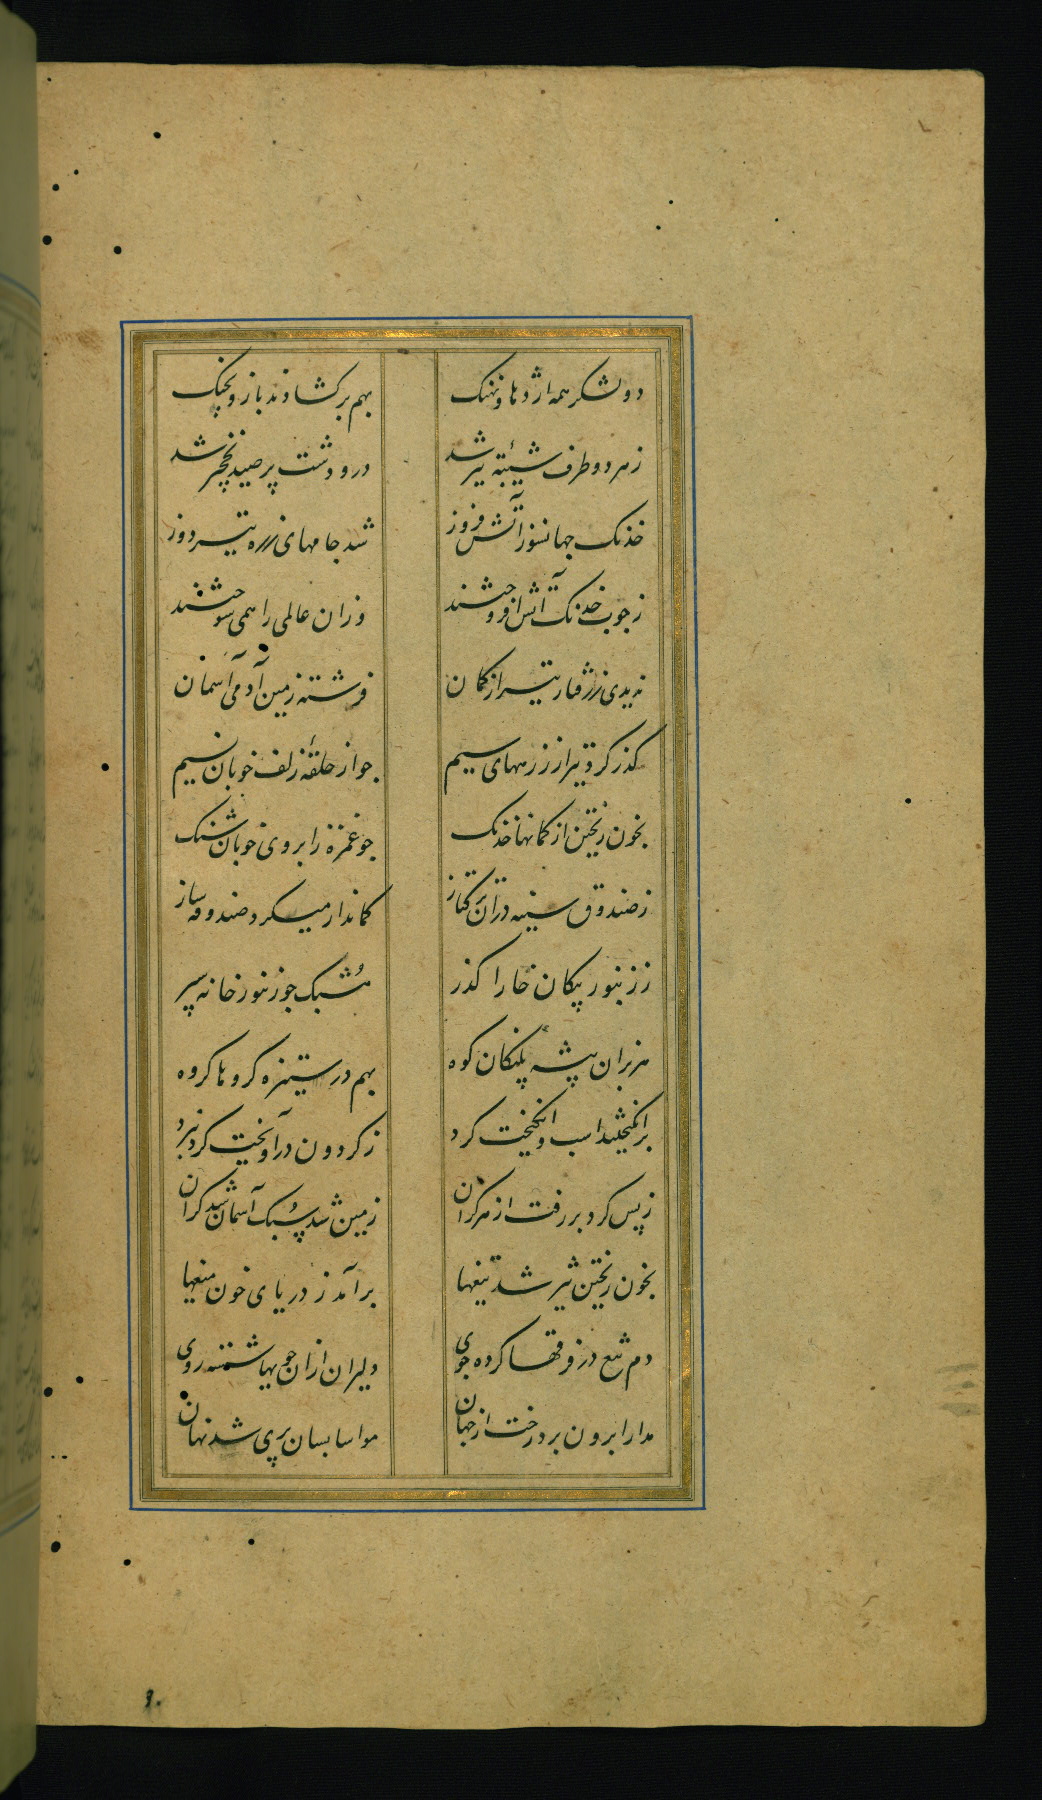 دو لشکر همه اژدها و نهنک بهم برکشادند بازو بجنک
ز هر دو طرف شیبهٔ تیر شد در و دشت پر صید نخچیر شد
خدنک جهانسوز آتش فروز شد جامهای زره تیردوز
ز چوب خدنک آتش افروختند وزان عالمی را همی سوختند
ندیدی ز رفتار تیر از کمان فرشته زمین آدمی آسمان
کذر کرد تیر از زرههای سیم چو از حلقهٔ زلف خوبان نسیم
بخون ریختن از کمانها خدنک چو غمزه ز ابروی خوبان شنک
ز صندوق سینه در آن ترکتاز کماندار میکرد صندوقه ساز
ز زنبور پیکان خارا کذر مُشبک چو زنبور خانه سپر
هزبران بیشه پلنکان کوه بهم در ستیزه کروها کروه
برانکیختند اسب و انکیخت کرد ز کردون درآویخت کرد نبرد
ز پس کرد بر رفت از هر کران زمین شد سبک آسمان شد کران
بخون ریختن تیز شد تیغها برآمد ز دریای خون میغها
دم تیغ در فرقها کرده جوی دلیران ازان جویها شسته روی
مدارا برون برد رخت از جهان مواسا بسان پری شد نهان